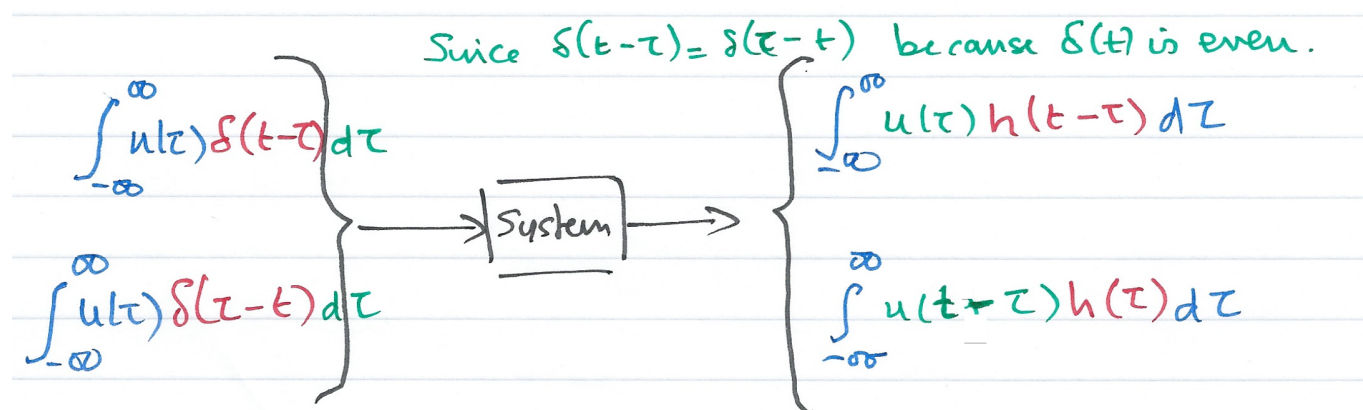 Since δ(t-τ)=δ(τ-t) because δ(t) is even.
∫_{-∞}^{∞} u(τ)δ(t-τ)dτ
∫_{-∞}^{∞} u(τ)h(t-τ)dτ
System
∫_{-∞}^{∞} u(τ)δ(τ-t)dτ
∫_{-∞}^{∞} u(t-τ)h(τ)dτ